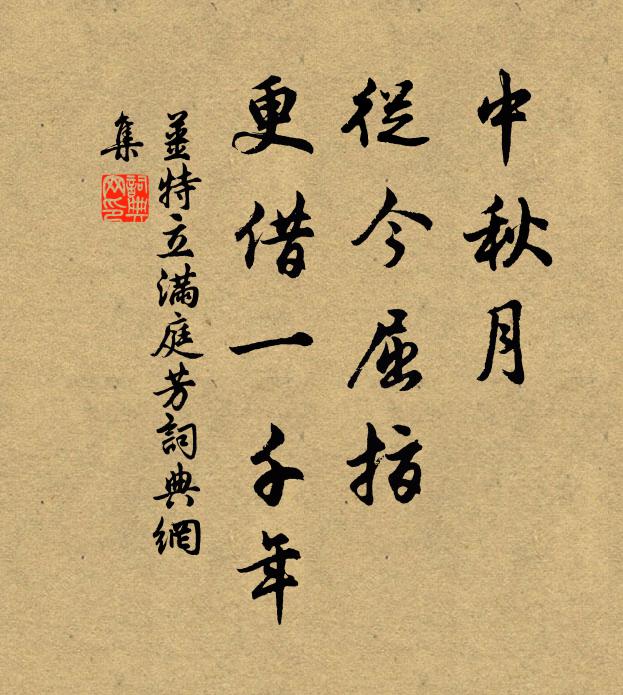 中秋月
從今屈指
更借一千年
姜特立滿庭芳詞典網
集
詞典网印